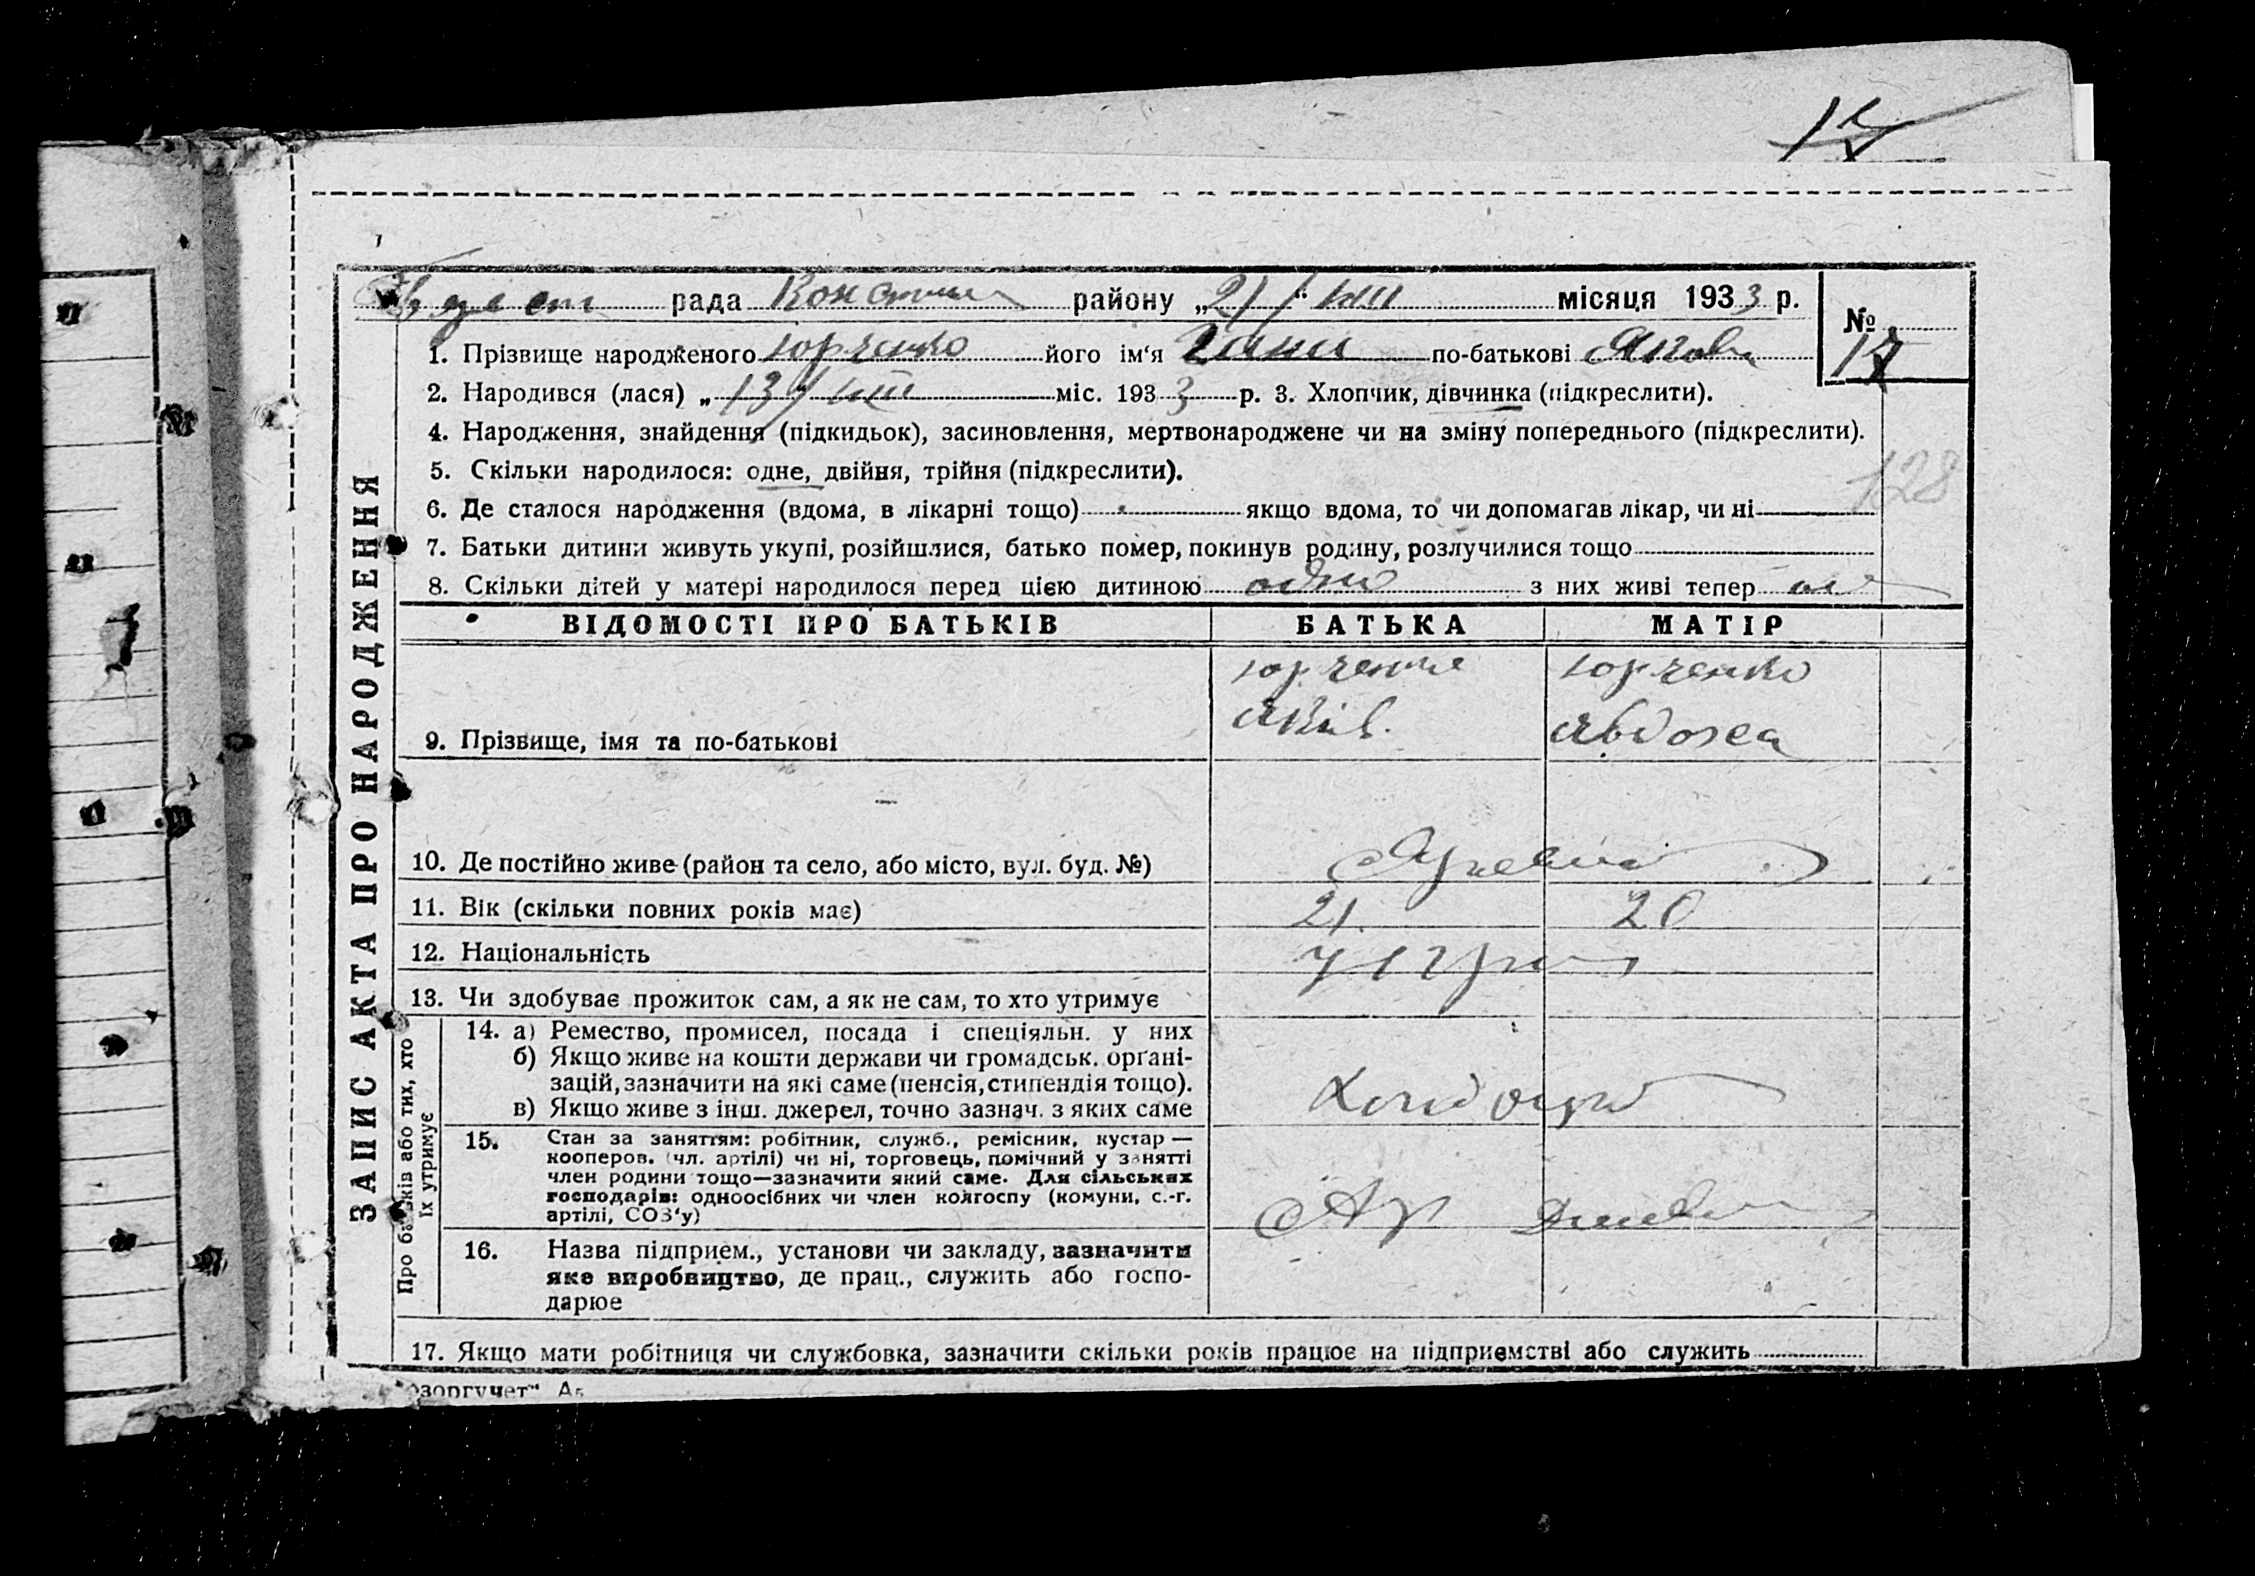 17
рада Конст району „21/“ VIII місяця 1933 р.
№ 17
1. Прізвище народженого Юрченко його ім‘я Ганна по-батькові Яков
2. Народився (лася) „13/“ VIII міс. 1933 р. 3. Хлопчик, дівчинка (підкреслити).
4. Народження, знайдення (підкидьок), засиновлення, мертвонароджене чи на зміну попереднього (підкреслити).
128
5. Скільки народилося: одне, двійня, трійня (підкреслити).
6. Де сталося народження (вдома, в лікарні тощо) якщо вдома, то чи допомагав лікар, чи ні
7. Батьки дитини живуть укупі, розійшлися, батько помер, покинув родину, розлучилися тощо
8. Скільки дітей у матері народилося перед цією дитиною одно з них живі тепер
ЗАПИС АКТА ПРО НАРОДЖЕННЯ
ВІДОМОСТІ ПРО БАТЬКІВ БАТЬКА МАТІР
Юрченко Юрченко
9. Прізвище, імя та по-батькові Яків. Явдоха
10. Де постійно живе (район та село, або місто, вул. буд. №)
11. Вік (скільки повних років має) 21. 20
12. Національність
13. Чи здобуває прожиток сам, а як не сам, то хто утримує
Про батьків або тих, хто їх утримує
14. а) Ремество, промисел, посада і спеціяльн. у них
б) Якщо живе на кошти держави чи громадськ. організацій, зазначити на які саме (пенсія, стипендія тощо).
в) Якщо живе з інш. джерел, точно зазнач. з яких саме
15. Стан за заняттям: робітник, служб., ремісник, кустар —
кооперов. (чл. артілі) чи ні, торговець, помічний у занятті
член родини тощо—зазначити який саме. Для сільських
господарів: одноосібних чи член колгоспу (комуни, с.-г.
артілі, СОЗ‘у)
16. Назва підприєм., установи чи закладу, зазначити
яке виробництво, де прац., служить або господарює
17. Якщо мати робітниця чи службовка, зазначити скільки років працює на підприємстві або служить